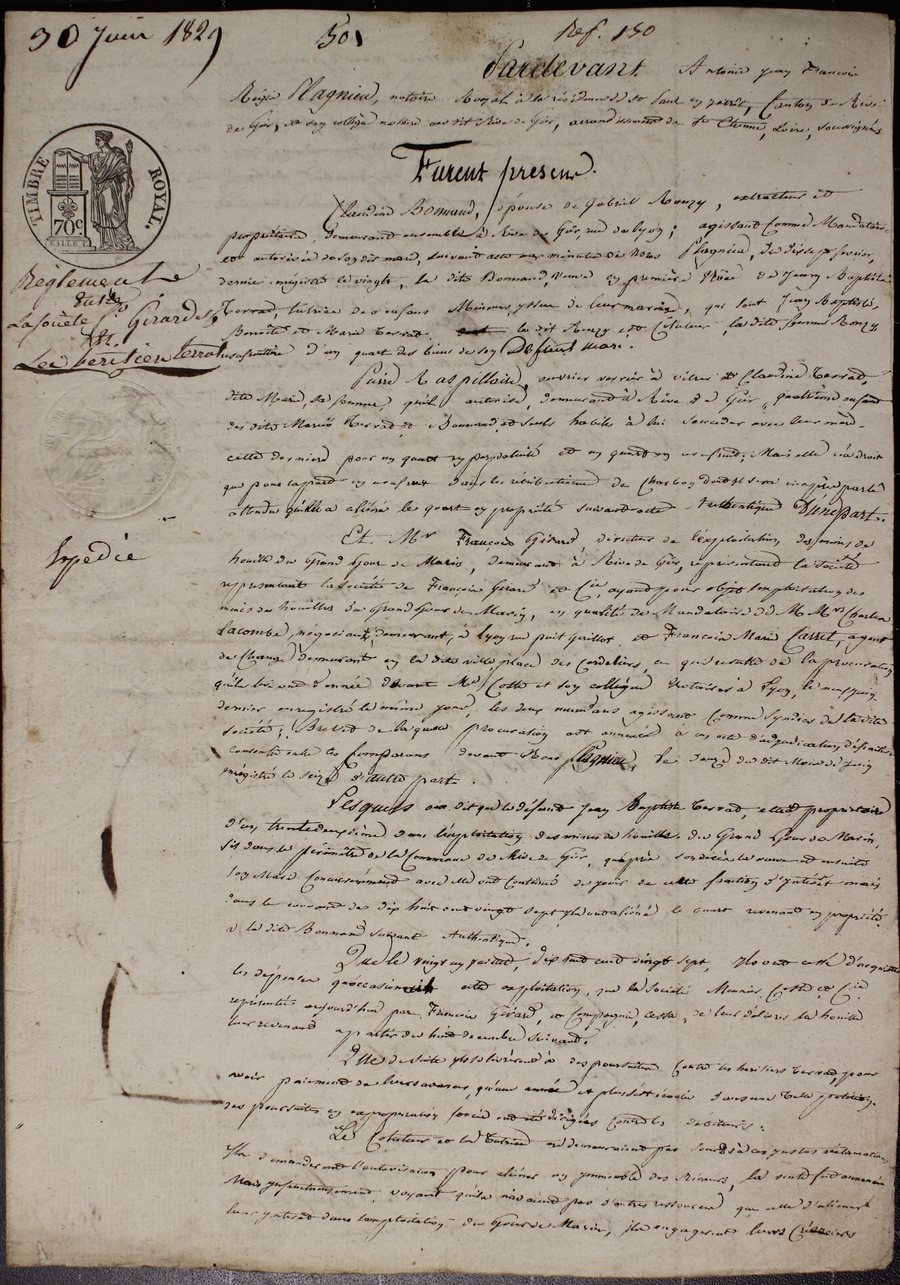 30 Juin 1829 50 Ref. 150
Pardevant Antoine Jean François
Régis Plagnieu, notaire Royal à la résidence de St Paul en Jarrêt, Canton de Rive
de Gier, et son collègue notaire audit Rive de Gier, arrondissement de St Etienne, Loire, soussignés
TIMBRE ROYAL.
70c
Furent present
Claudine Bonnand, épouse de Gabriel Rouzy, extracteur et
propriétaire, demeurant ensemble à Rive de Gier, rue de Lyon; agissant comme Mandataire
et autorisée de son dit mari, suivant acte aux minutes de nous Plagnieu, du dix sept février
dernier, enregistré le vingt, la dite Bonnand, veuve en première Nôce de Jean Baptiste
Terrad, tutrice de ses enfans Mineurs, issus de leur mariage, qui sont Jean Baptiste,
Benoîte et Marie Terrad, le dit Rouzy est Cotuteur, la dite femme Rouzy
usufruitière d'un quart des biens de son Défunt mari.
Règlement
entre
La Société Girard
Et
Les héritiers Terrat
Pierre Raspillaire, ouvrier verrier à vitres et Claudine Terrad,
dite Marie, sa femme, qu'il autorise, demeurant à Rive de Gier, quatrième enfant
des dits Mariés Terrad et Bonnand, et seuls habiles à lui succéder avec leur mère.
celle dernière pour un quart en propriété et un quart en usufruit; Mais elle n'a droit
que pour sa part en usufruit dans les rétributions de Charbon dont il sera ci-après parlé
attendu qu'elle a aliéné le quart en propriété suivant acte Authentique D'une part.
Expédié
Et Mr François Girard directeur de l'exploitation des mines de
houille du Grand Gour de Marin, demeurant à Rive de Gier, représentant la Société
représentant la Société de François Girard et Cie, ayant pour objet l'exploitation des
mines de houilles du Grand Gour de Marin, en qualité de Mandataire de M Mrs Charles
Lacombe, négociant, demeurant à Lyon rue puit Grillot, et François Marie Casset, agent
de Change demeurant en la dite ville place des Cordeliers, ce qui résulte de la procuration
qu'ils lui ont donnée devant Me Coste et son collègue Notaires à Lyon, le neuf juin
dernier enregistré le même jour, les deux mandans agissant comme syndics de la dite
société; Brevet de laquelle procuration est annexé à un acte d'adjudication définitive
consentie entre les comparans devant Nous Plagnieu, le douze du dit Mois de Juin
enregistré le seize d'autre part.
Lesquels ont dit que le défunt Jean Baptiste Terrad, était propriétaire
d'un trente deuxième dans l'exploitation des mines de houille du Grand Gour de Marin,
sis dans le périmètre de la Commune de Rive de Gier, qu'après son décès la veuve et ensuite
son Mari Conjointement avec elle ont continué de jouir de cette fraction d'Intérêt mais
dans le courant de dix huit cent vingt sept, ils ont aliéné le quart revenant en propriété
à la dite Bonnand suivant Authentique.
Que le vingt un juillet, dix huit cent vingt sept, ils ont cessé d'acquitter
les dépenses qu'occasionnait cette exploitation, que la Société Monnier Coste et Cie
représentée aujourd'hui par François Girard, et Compagnie, cessa, de leur délivrer la houille
leur revenant à partir du huit décembre suivant.
Que de suite ils se livrèrent à des poursuites contre les héritiers Terrad, pour
avoir paiement de leurs avances, qu'une année et plus s'est écoulée dans une telle position,
des poursuites en expropriation forcée ont été dirigées contre les débiteurs.
Le Cotuteur et la Tutrice ne demeuraient pas sourds à ces justes réclamations,
Ils demandèrent l'autorisation pour aliéner un immeuble des Mineurs, la vente fut annoncée
Mais infructueusement, voyant qu'ils n'avaient pas d'autre ressource que celle d'aliéner
leur intérêt dans l'exploitation du Gour de Marin, ils engagèrent leurs Créanciers